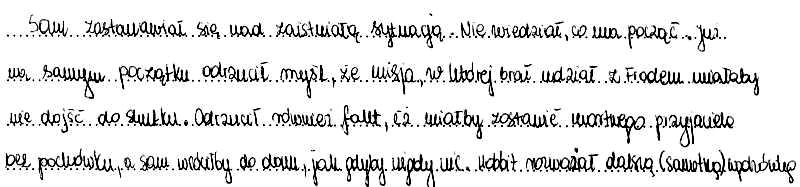 Sam zastanawiał się nad zaistniałą sytuacją. Nie wiedział, co ma począć. Już
na samym początku odrzucił myśl, że misja, w której brał udział z Frodem miałaby
nie dojść do skutku. Odrzucił również fakt, iż miałby zostawić martwego przyjaciela
bez pochówku, a sam wróciłby do domu, jak gdyby nigdy nic. Hobbit rozważał dalszą (samotną) wędrówkę